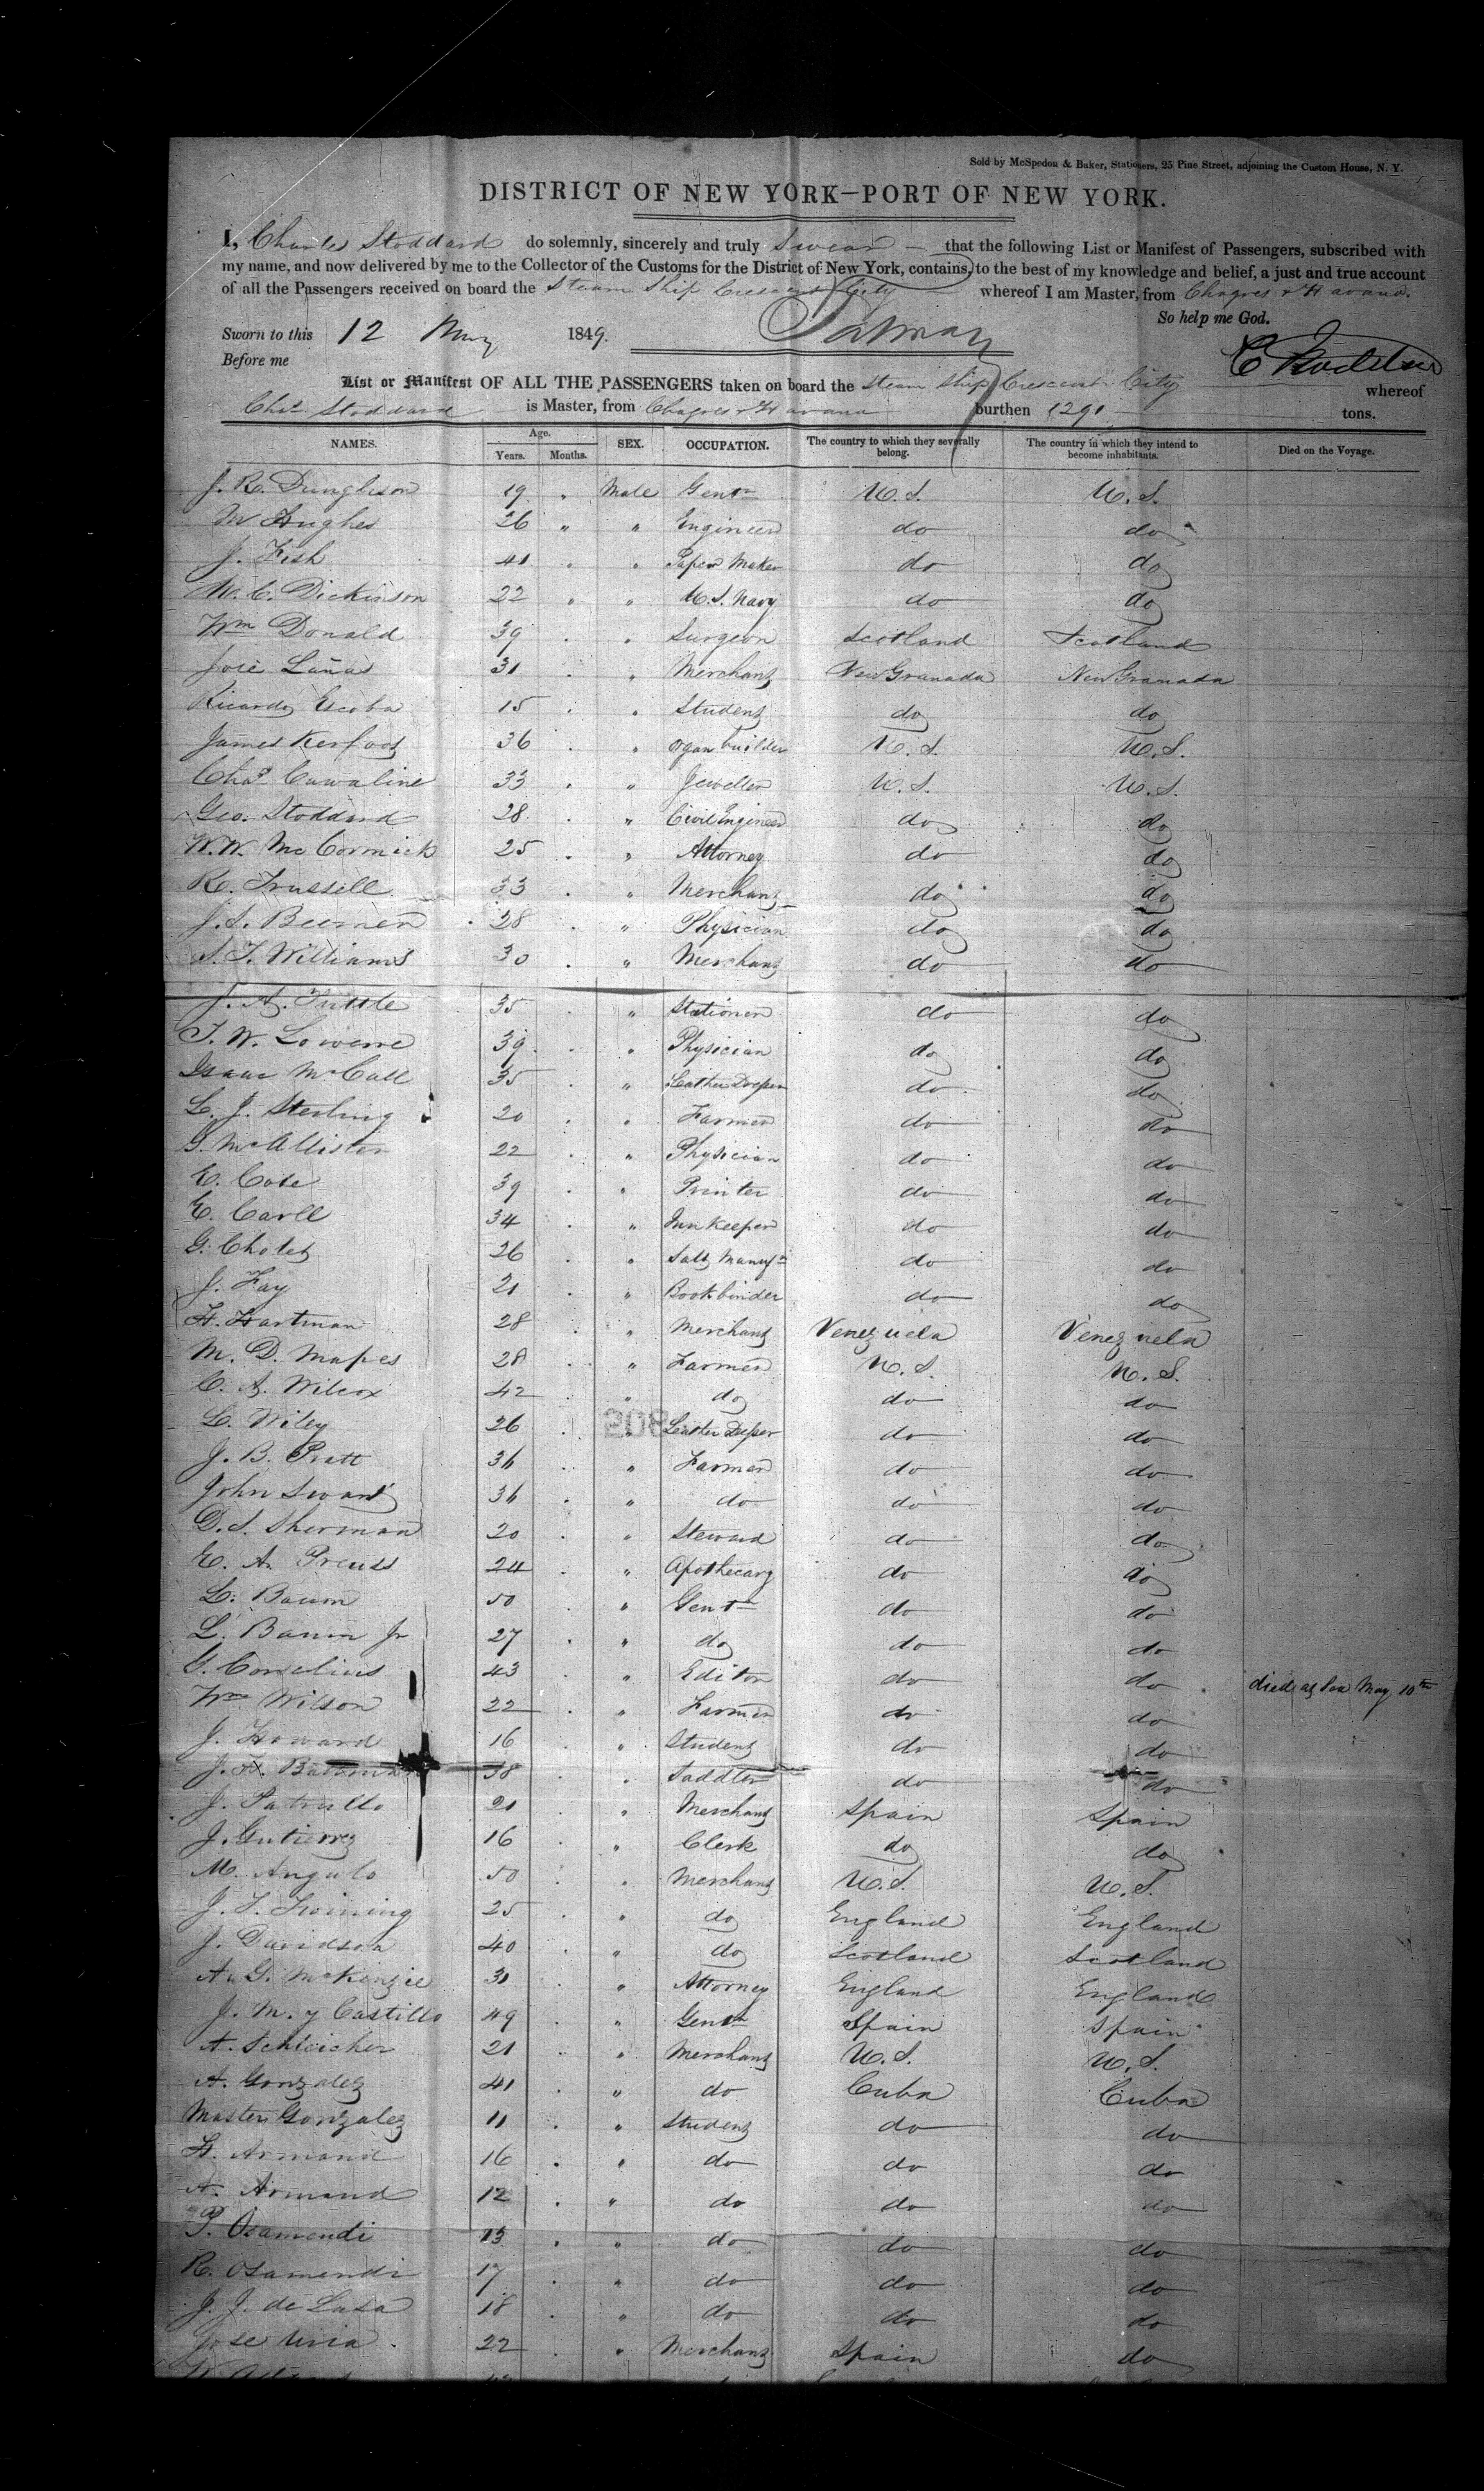 Sold by McSpedon & Baker, Stationers, 25 Pine Street, adjoining the Custom House, N. Y.
DISTRICT OF NEW YORK—PORT OF NEW YORK.
I, Charles Stoddard do solemnly, sincerely and truly Swear — that the following List or Manifest of Passengers, subscribed with
my name, and now delivered by me to the Collector of the Customs for the District of New York, contains, to the best of my knowledge and belief, a just and true account
of all the Passengers received on board the Steam Ship Crescent City whereof I am Master, from Chagres & Havana.
So help me God.
Sworn to this 12 May 1849.
Before me
C Stoddard
List or Manifest OF ALL THE PASSENGERS taken on board the Steam Ship Crescent City whereof
Chas Stoddard is Master, from Chagres & Havana burthen 1291 tons.
NAMES. Age. Years. Months. SEX. OCCUPATION. The country to which they severally belong. The country in which they intend to become inhabitants. Died on the Voyage.
J. R. Dunglison 19 " Male Gentn U.S. U.S.
M Hughes 26 " " Engineer do do
J. Fish 41 " " Paper Maker do do
W. C. Dickinson 22 " " U.S. Navy do do
Wm Donald 39 " Surgeon Scotland Scotland
José Lañas 31 " Merchant New Granada New Granada
Ricardo Escoba 15 " Student do do
James Kerfoot 36 " Organ builder U.S. U.S.
Chas Cawaline 33 " Jeweller U.S. U.S.
Geo. Stoddard 28 " Civil Engineer do do
W. W. McCormick 25 " Attorney do do
R. Trussell 33 " Merchant do do
J. S. Beemen 28 " Physician do do
S. T. Williams 30 " Merchant do do
J. A. Tuttle 35 " Stationer do do
T. W. Lowerre 39 " Physician do do
Isaac McCall 35 " Leather Dresser do do
L. J. Sterling 20 " Farmer do do
G. McAllister 22 " Physician do do
E. Cole 39 " Printer do do
E. Carll 34 " Inn Keeper do do
G. Cholet 26 " Salt Manufr do do
J. Fay 21 " Bookbinder do do
H. Hartman 28 " Merchant Venezuela Venezuela
M. D. Mapes 28 " Farmer U.S. U.S.
C. A. Wilcox 42 " do do do
L. Wiley 26 " Leather Dresser do do
J. B. Pratt 36 " Farmer do do
John Swart 36 " do do do
D. S. Sherman 20 " Steward do do
E. A. Preuss 24 " Apothecary do do
L. Baum 50 " Gentn do do
L. Baum Jr 27 " do do do
G. Cornelius 43 " Editor do do died at Sea May 10th
Wm Wilson 22 " Farmer do do
J. Howard 16 " Student do do
J. H. 38 " Saddler do do
J. Patrullo 21 " Merchant Spain Spain
J. Gutierrez 16 " Clerk do do
M. Angulo 50 " Merchant U.S. U.S.
J. T. Twining 25 " do England England
J. Davidson 40 " do Scotland Scotland
A. G. McKenzie 31 " Attorney England England
J. M. y Castillo 49 " Gentn Spain Spain
A. Schleicher 21 " Merchant U.S. U.S.
A. Gonzalez 41 " do Cuba Cuba
Master Gonzalez 11 " Student do do
H. Armand 16 " do do do
A. Armand 12 " do do do
P. Osamendi 13 " do do do
R. Osamendi 17 " do do do
J. J. de Lasa 18 " do do do
Jose Uria 22 " Merchant Spain do